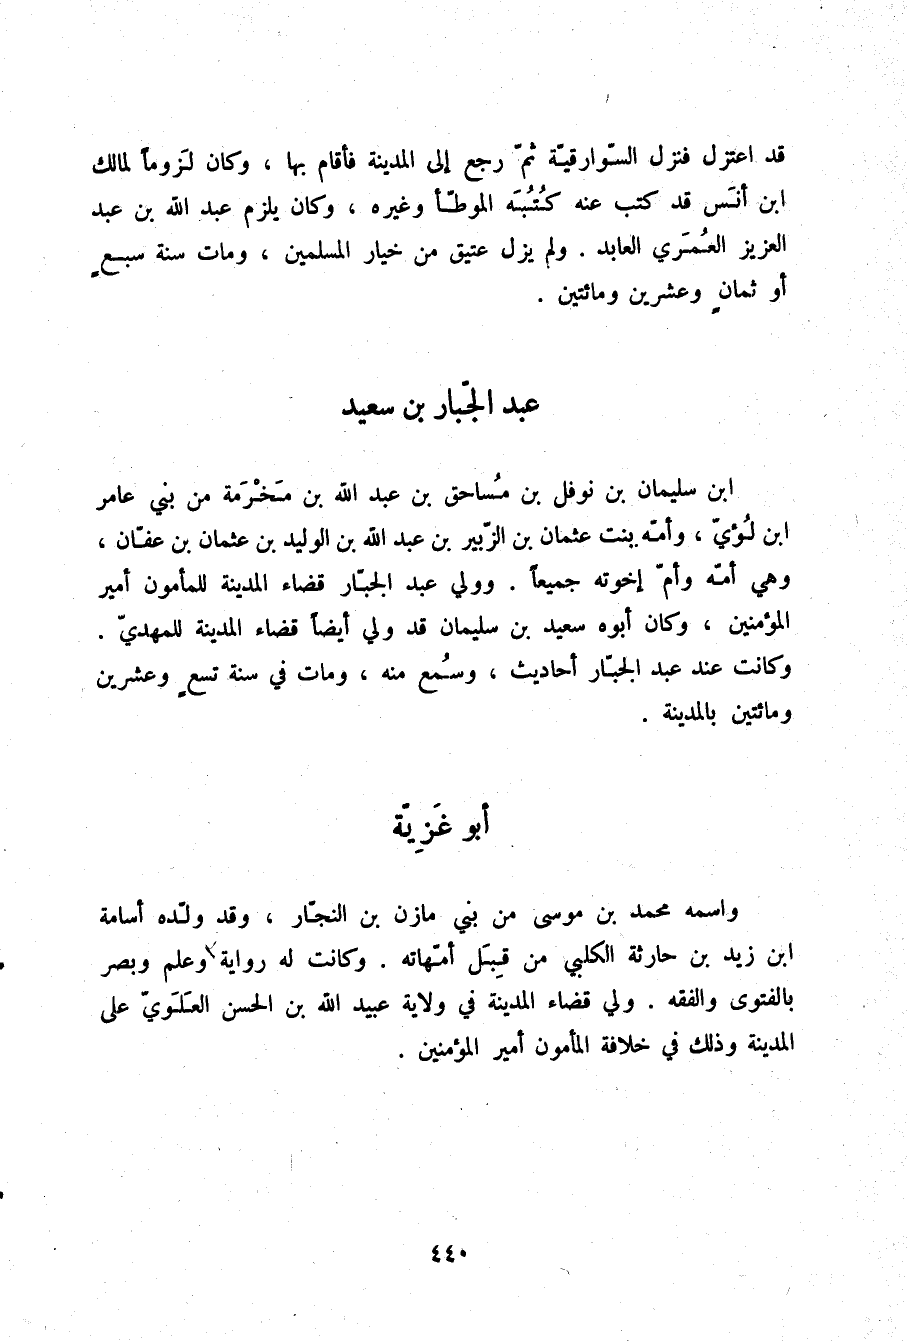 قد اعتزل فنزل السّوارقيّة ثمّ رجع إلى المدينة فأقام بها ، وكان لَزوماً لمالك
ابن أنَس قد كتب عنه كُتُبَه الموطّأ وغيره ، وكان يلزم عبد الله بن عبد
العزيز العُمَري العابد . ولم يزل عتيق من خيار المسلمين ، ومات سنة سبعٍ
أو ثمانٍ وعشرين ومائتين .
عبد الجّبار بن سعيد
ابن سليمان بن نوفل بن مُساحق بن عبد الله بن مَخْرَمة من بني عامر
ابن لُؤيّ ، وأمّه بنت عثمان بن الزّبير بن عبد الله بن الوليد بن عثمان بن عفّان ،
وهي أمّه وأمّ إخوته جميعاً . وولي عبد الجبّار قضاء المدينة للمأمون أمير
المؤمنين ، وكان أبوه سعيد بن سليمان قد ولي أيضاً قضاء المدينة للمهديّ .
وكانت عند عبد الجبّار أحاديث ، وسُمع منه ، ومات في سنة تسعٍ وعشرين
ومائتين بالمدينة .
أبو غَزِيّة
واسمه محمد بن موسى من بني مازن بن النجّار ، وقد ولّده أسامة
ابن زيد بن حارثة الكلبي من قِبَل أمّهاته . وكانت له رواية وعلم وبصر
بالفتوى والفقه . ولي قضاء المدينة في ولاية عبيد الله بن الحسن العَلَويّ على
المدينة وذلك في خلافة المأمون أمير المؤمنين .
٤٤٠